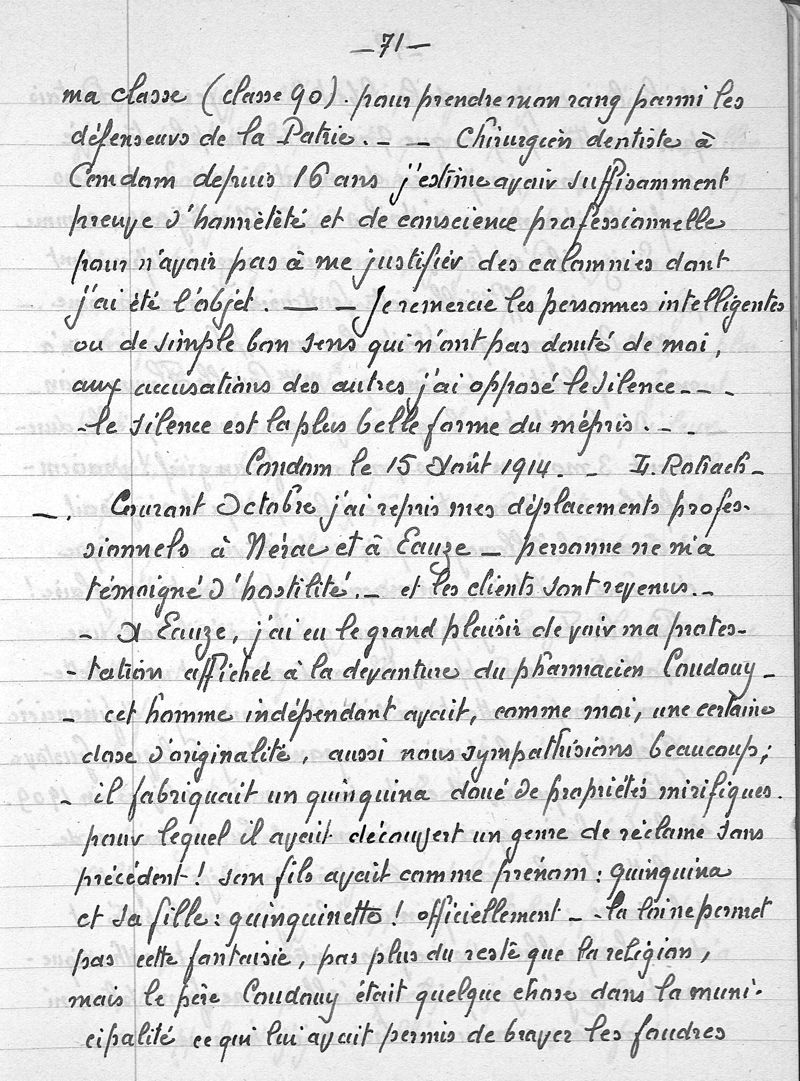 — 71 —
ma classe (classe 90). pour prendre mon rang parmi les
défenseurs de la Patrie. — — Chirurgien dentiste à
Condom depuis 16 ans j'estime avoir suffisamment
preuve d'honnêtèté et de conscience professionnelle
pour n'avoir pas à me justifier des calomnies dont
j'ai été l'objet. — — Je remercie les personnes intelligentes
ou de simple bon sens qui n'ont pas douté de moi,
aux accusations des autres j'ai opposé le silence - - -
- le silence est la plus belle forme du mépris. - -
Condom le 15 Août 1914. - L. Rokach -
—. Courant Octobre j'ai repris mes déplacements profes-
sionnels à Nérac et à Eauze — personne ne m'a
témoigné d'hostilité. — et les clients sont revenus. -
- A Eauze, j'ai eu le grand plaisir de voir ma protes-
- tation affichée à la devanture du pharmacien Coudouy -
- cet homme indépendant avait, comme moi, une certaine
dose d'originalité, aussi nous sympathisions beaucoup;
- il fabriquait un quinquina doué de propriétés mirifiques.
pour lequel il avait découvert un genre de réclame sans
précédent! son fils avait comme prénom : quinquina
et sa fille : quinquinette! officiellement - la loi ne permet
pas cette fantaisie, pas plus du reste que la religion,
mais le père Coudouy était quelque chose dans la muni-
cipalité ce qui lui avait permis de braver les foudres